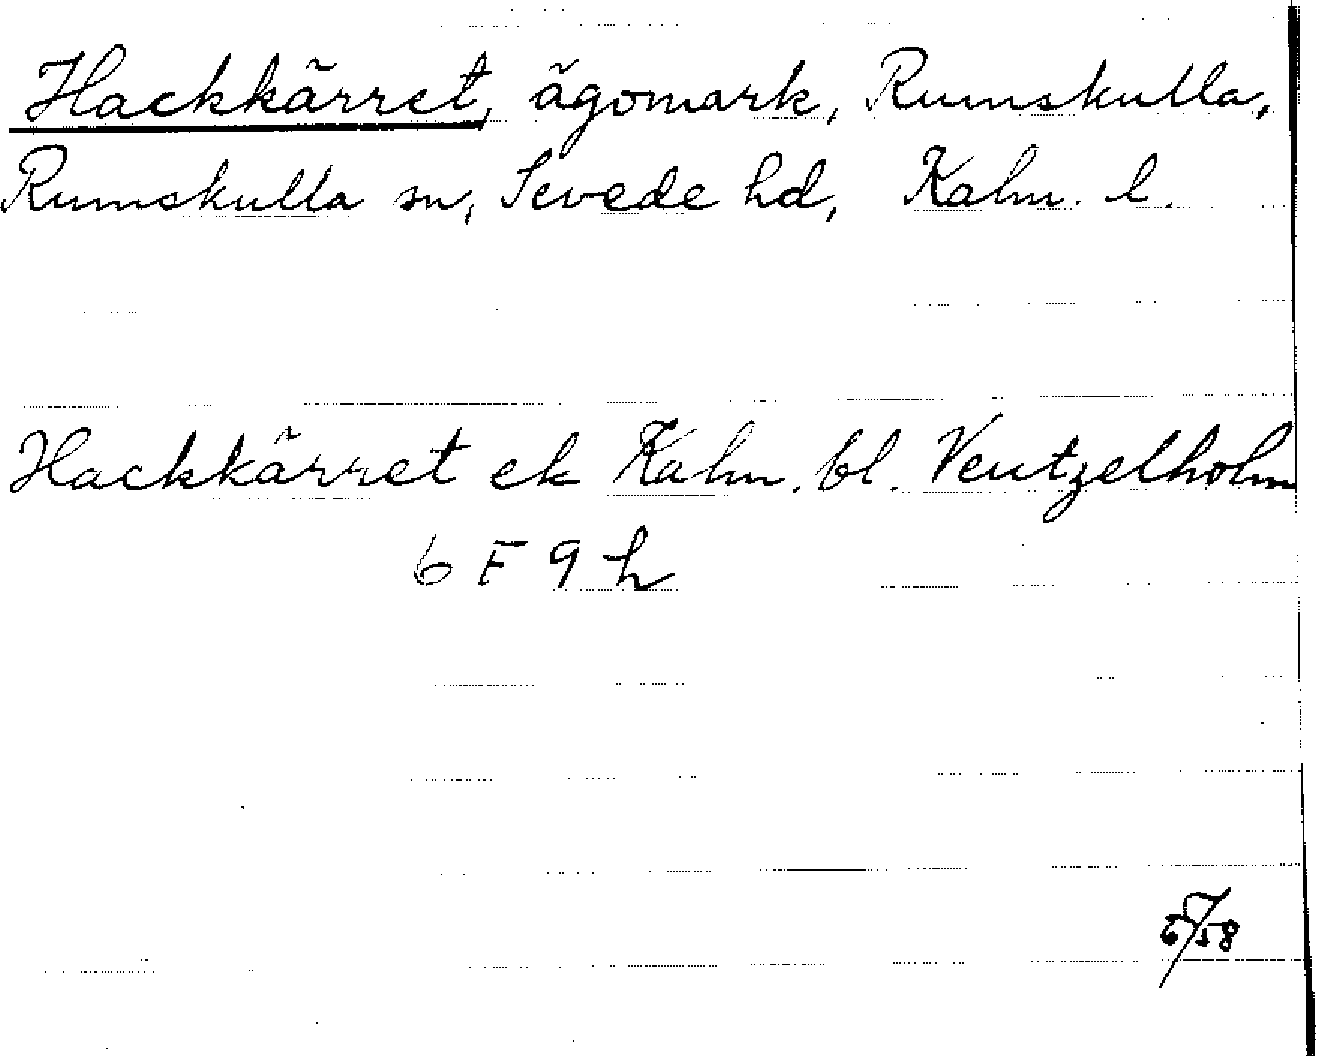 Hackkärret, ägomark, Rumskulla,
Rumskulla sn, Sevede hd, Kalm. l.
Hackkärret ek Kalm. bl. Ventzelholm
6 F 9 h